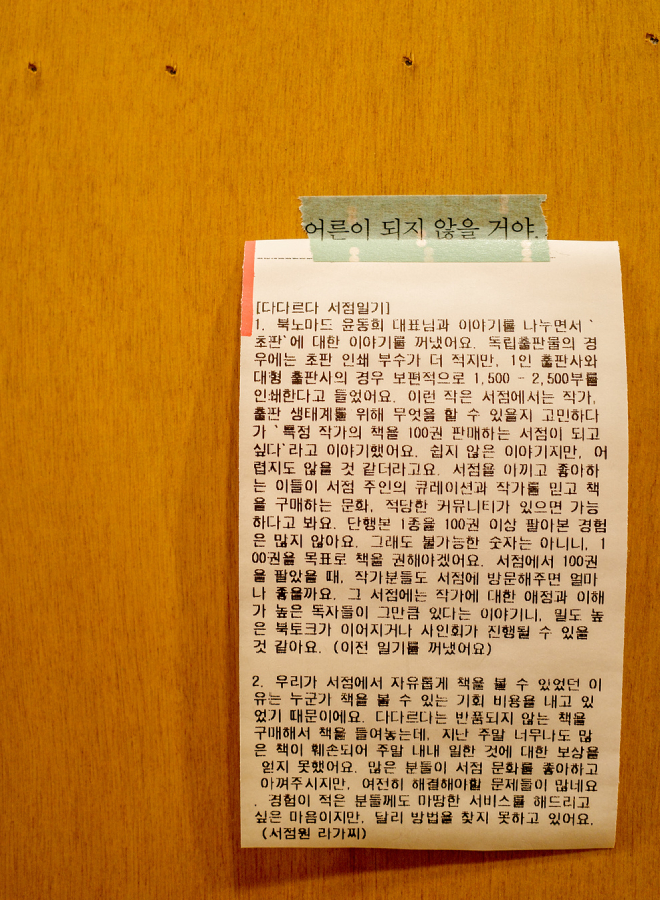 어른이 되지 않을 거야.
[다다르다 서점일기]
1. 북노마드 윤동희 대표님과 이야기를 나누면서 `
초판`에 대한 이야기를 꺼냈어요. 독립출판물의 경
우에는 초판 인쇄 부수가 더 적지만, 1인 출판사와
대형 출판사의 경우 보편적으로 1,500 - 2,500부를
인쇄한다고 들었어요. 이런 작은 서점에서는 작가,
출판 생태계를 위해 무엇을 할 수 있을지 고민하다
가 `특정 작가의 책을 100권 판매하는 서점이 되고
싶다`라고 이야기했어요. 쉽지 않은 이야기지만, 어
렵지도 않을 것 같더라고요. 서점을 아끼고 좋아하
는 이들이 서점 주인의 큐레이션과 작가를 믿고 책
을 구매하는 문화, 적당한 커뮤니티가 있으면 가능
하다고 봐요. 단행본 1종을 100권 이상 팔아본 경험
은 많지 않아요. 그래도 불가능한 숫자는 아니니, 1
00권을 목표로 책을 권해야겠어요. 서점에서 100권
을 팔았을 때, 작가분들도 서점에 방문해주면 얼마
나 좋을까요. 그 서점에는 작가에 대한 애정과 이해
가 높은 독자들이 그만큼 있다는 이야기니, 밀도 높
은 북토크가 이어지거나 사인회가 진행될 수 있을
것 같아요. (이전 일기를 꺼냈어요)
2. 우리가 서점에서 자유롭게 책을 볼 수 있었던 이
유는 누군가 책을 볼 수 있는 기회 비용을 내고 있
었기 때문이에요. 다다르다는 반품되지 않는 책을
구매해서 책을 들여놓는데, 지난 주말 너무나도 많
은 책이 훼손되어 주말 내내 일한 것에 대한 보상을
얻지 못했어요. 많은 분들이 서점 문화를 좋아하고
아껴주시지만, 여전히 해결해야할 문제들이 많네요
. 경험이 적은 분들께도 마땅한 서비스를 해드리고
싶은 마음이지만, 달리 방법을 찾지 못하고 있어요.
(서점원 라가찌)